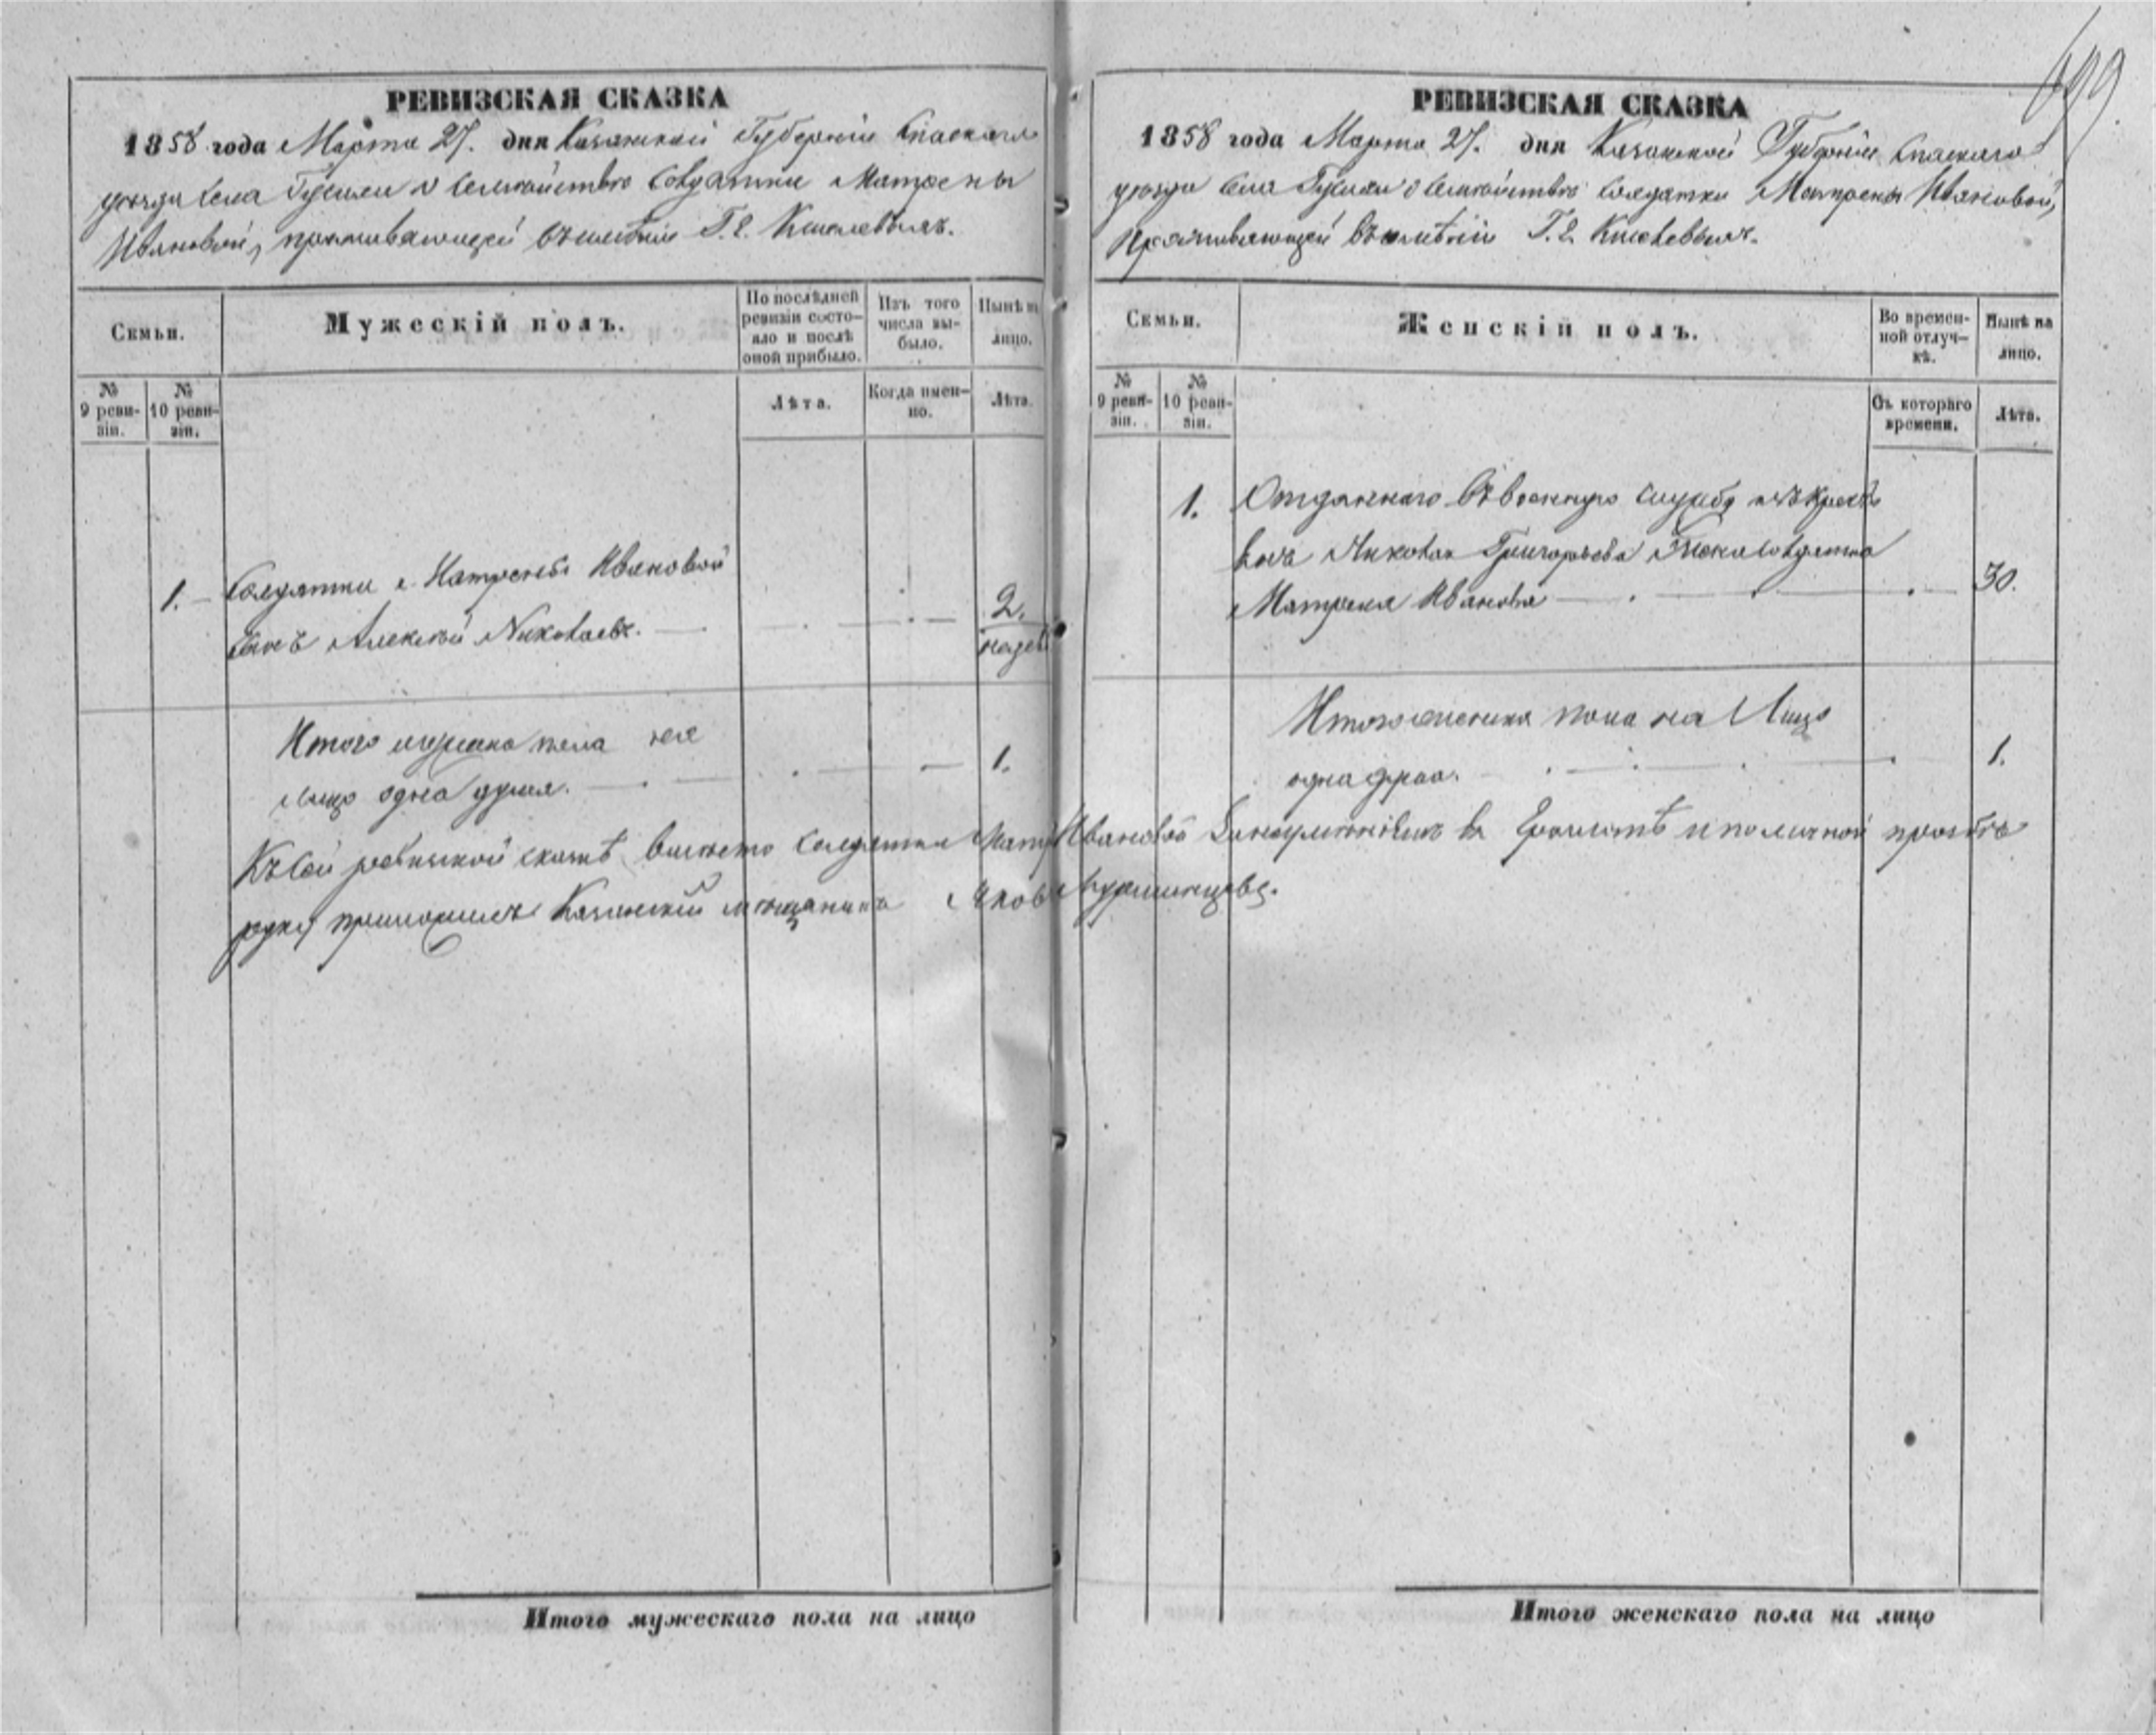 РЕВИЗСКАЯ СКАЗКА
1858 года Марта 27. дня Казанской Губерніи Спаскаго
уезда Села о семействе Солдатки Матрены
Ивановой, проживающей въ именіи Г. Г. Киселевыхъ.
Семьи.
Мужескій полъ.
По послѣдней ревизіи состояло и послѣ оной прибыло.
Изъ того числа выбыло.
Нынѣ на лицо.
№ 9 ревизіи.
№ 10 ревизіи.
Лѣта.
Когда именно.
Лѣта.
1. Солдатки Матрены Ивановой
сынъ Алексей Николаевъ. 2.
недел
Итого мужска пола на
лицо одна душа. 1.
РЕВИЗСКАЯ СКАЗКА
699
1858 года Марта 27. дня Казанской Губерніи Спаскаго
уезда Села о семействе Солдатки Матрены Ивановой,
Проживающей въ именіи Г. Г. Киселевыхъ.
Семьи.
Женскій полъ.
Во временной отлучкѣ.
Нынѣ на лицо.
№ 9 ревизіи.
№ 10 ревизіи.
Съ котораго времени.
Лѣта.
1. Отданнаго въ военную службу изъ
Николая Григорьева Жена Солдатка
Матрена Иванова 30.
Итого женска пола на Лицо
одна душа. 1.
Къ сей ревизской сказкѣ вместо Солдатки Матр Ивановой за неуменіемъ ея Грамотѣ и по личной прозьбе
руку приложилъ Казанскій мещанинъ Яковъ
Итого мужескаго пола на лицо
Итого женскаго пола на лицо